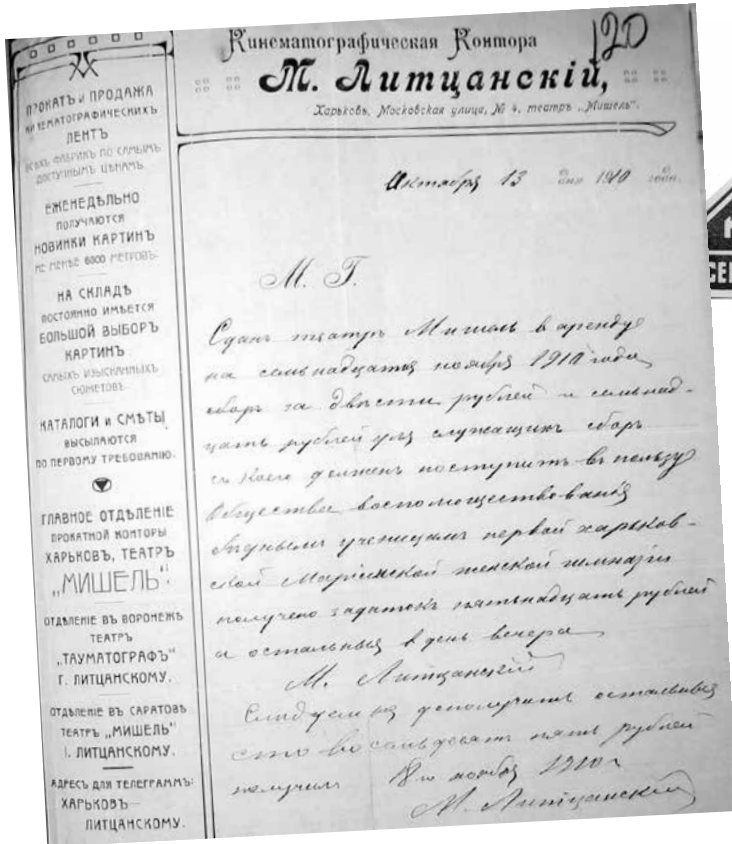 120
Кинематографическая Контора
М. Литцанскій,
Харьковъ, Московская улица, № 4, театръ „Мишель".
ПРОКАТЪ и ПРОДАЖА
КИНЕМАТОГРАФИЧЕСКИХЪ
ЛЕНТЪ
ВСѢХЪ ФАБРИКЪ ПО САМЫМЪ
ДОСТУПНЫМЪ ЦѢНАМЪ.
ЕЖЕНЕДѢЛЬНО
ПОЛУЧАЮТСЯ
НОВИНКИ КАРТИНЪ
НЕ МЕНѢЕ 6000 МЕТРОВЪ.
НА СКЛАДѢ
ПОСТОЯННО ИМѢЕТСЯ
БОЛЬШОЙ ВЫБОРЪ
КАРТИНЪ
САМЫХЪ ИЗЫСКАННЫХЪ
СЮЖЕТОВЪ.
КАТАЛОГИ и СМѢТЫ
ВЫСЫЛАЮТСЯ
ПО ПЕРВОМУ ТРЕБОВАНІЮ.
ГЛАВНОЕ ОТДѢЛЕНІЕ
ПРОКАТНОЙ КОНТОРЫ
ХАРЬКОВЪ, ТЕАТРЪ
„МИШЕЛЬ".
ОТДѢЛЕНІЕ ВЪ ВОРОНЕЖѢ
ТЕАТРЪ
„ТАУМАТОГРАФЪ"
Г. ЛИТЦАНСКОМУ.
ОТДѢЛЕНІЕ ВЪ САРАТОВѢ
ТЕАТРЪ „МИШЕЛЬ"
І. ЛИТЦАНСКОМУ.
АДРЕСЪ ДЛЯ ТЕЛЕГРАММЪ:
ХАРЬКОВЪ—
ЛИТЦАНСКОМУ.
Октября 13 дня 1910 года.
М. Г.
Сданъ театръ Мишель в аренду
на семьнадцатое ноября 1910 года
сборъ за двѣсти рублей и семьнад-
цать рублей для служащихъ сборъ
съ коего долженъ поступить въ пользу
Общества воспомоществованія
бѣднымъ ученицамъ первой харьков-
ской Маріинской женской гимназіи
получено задатокъ пятьнадцать рублей
а остальныя в день вечера
М. Литцанскій
дополучить
сто восемьдесятъ пять рублей
получилъ 18го ноября 1910 г
М. Литцанскій